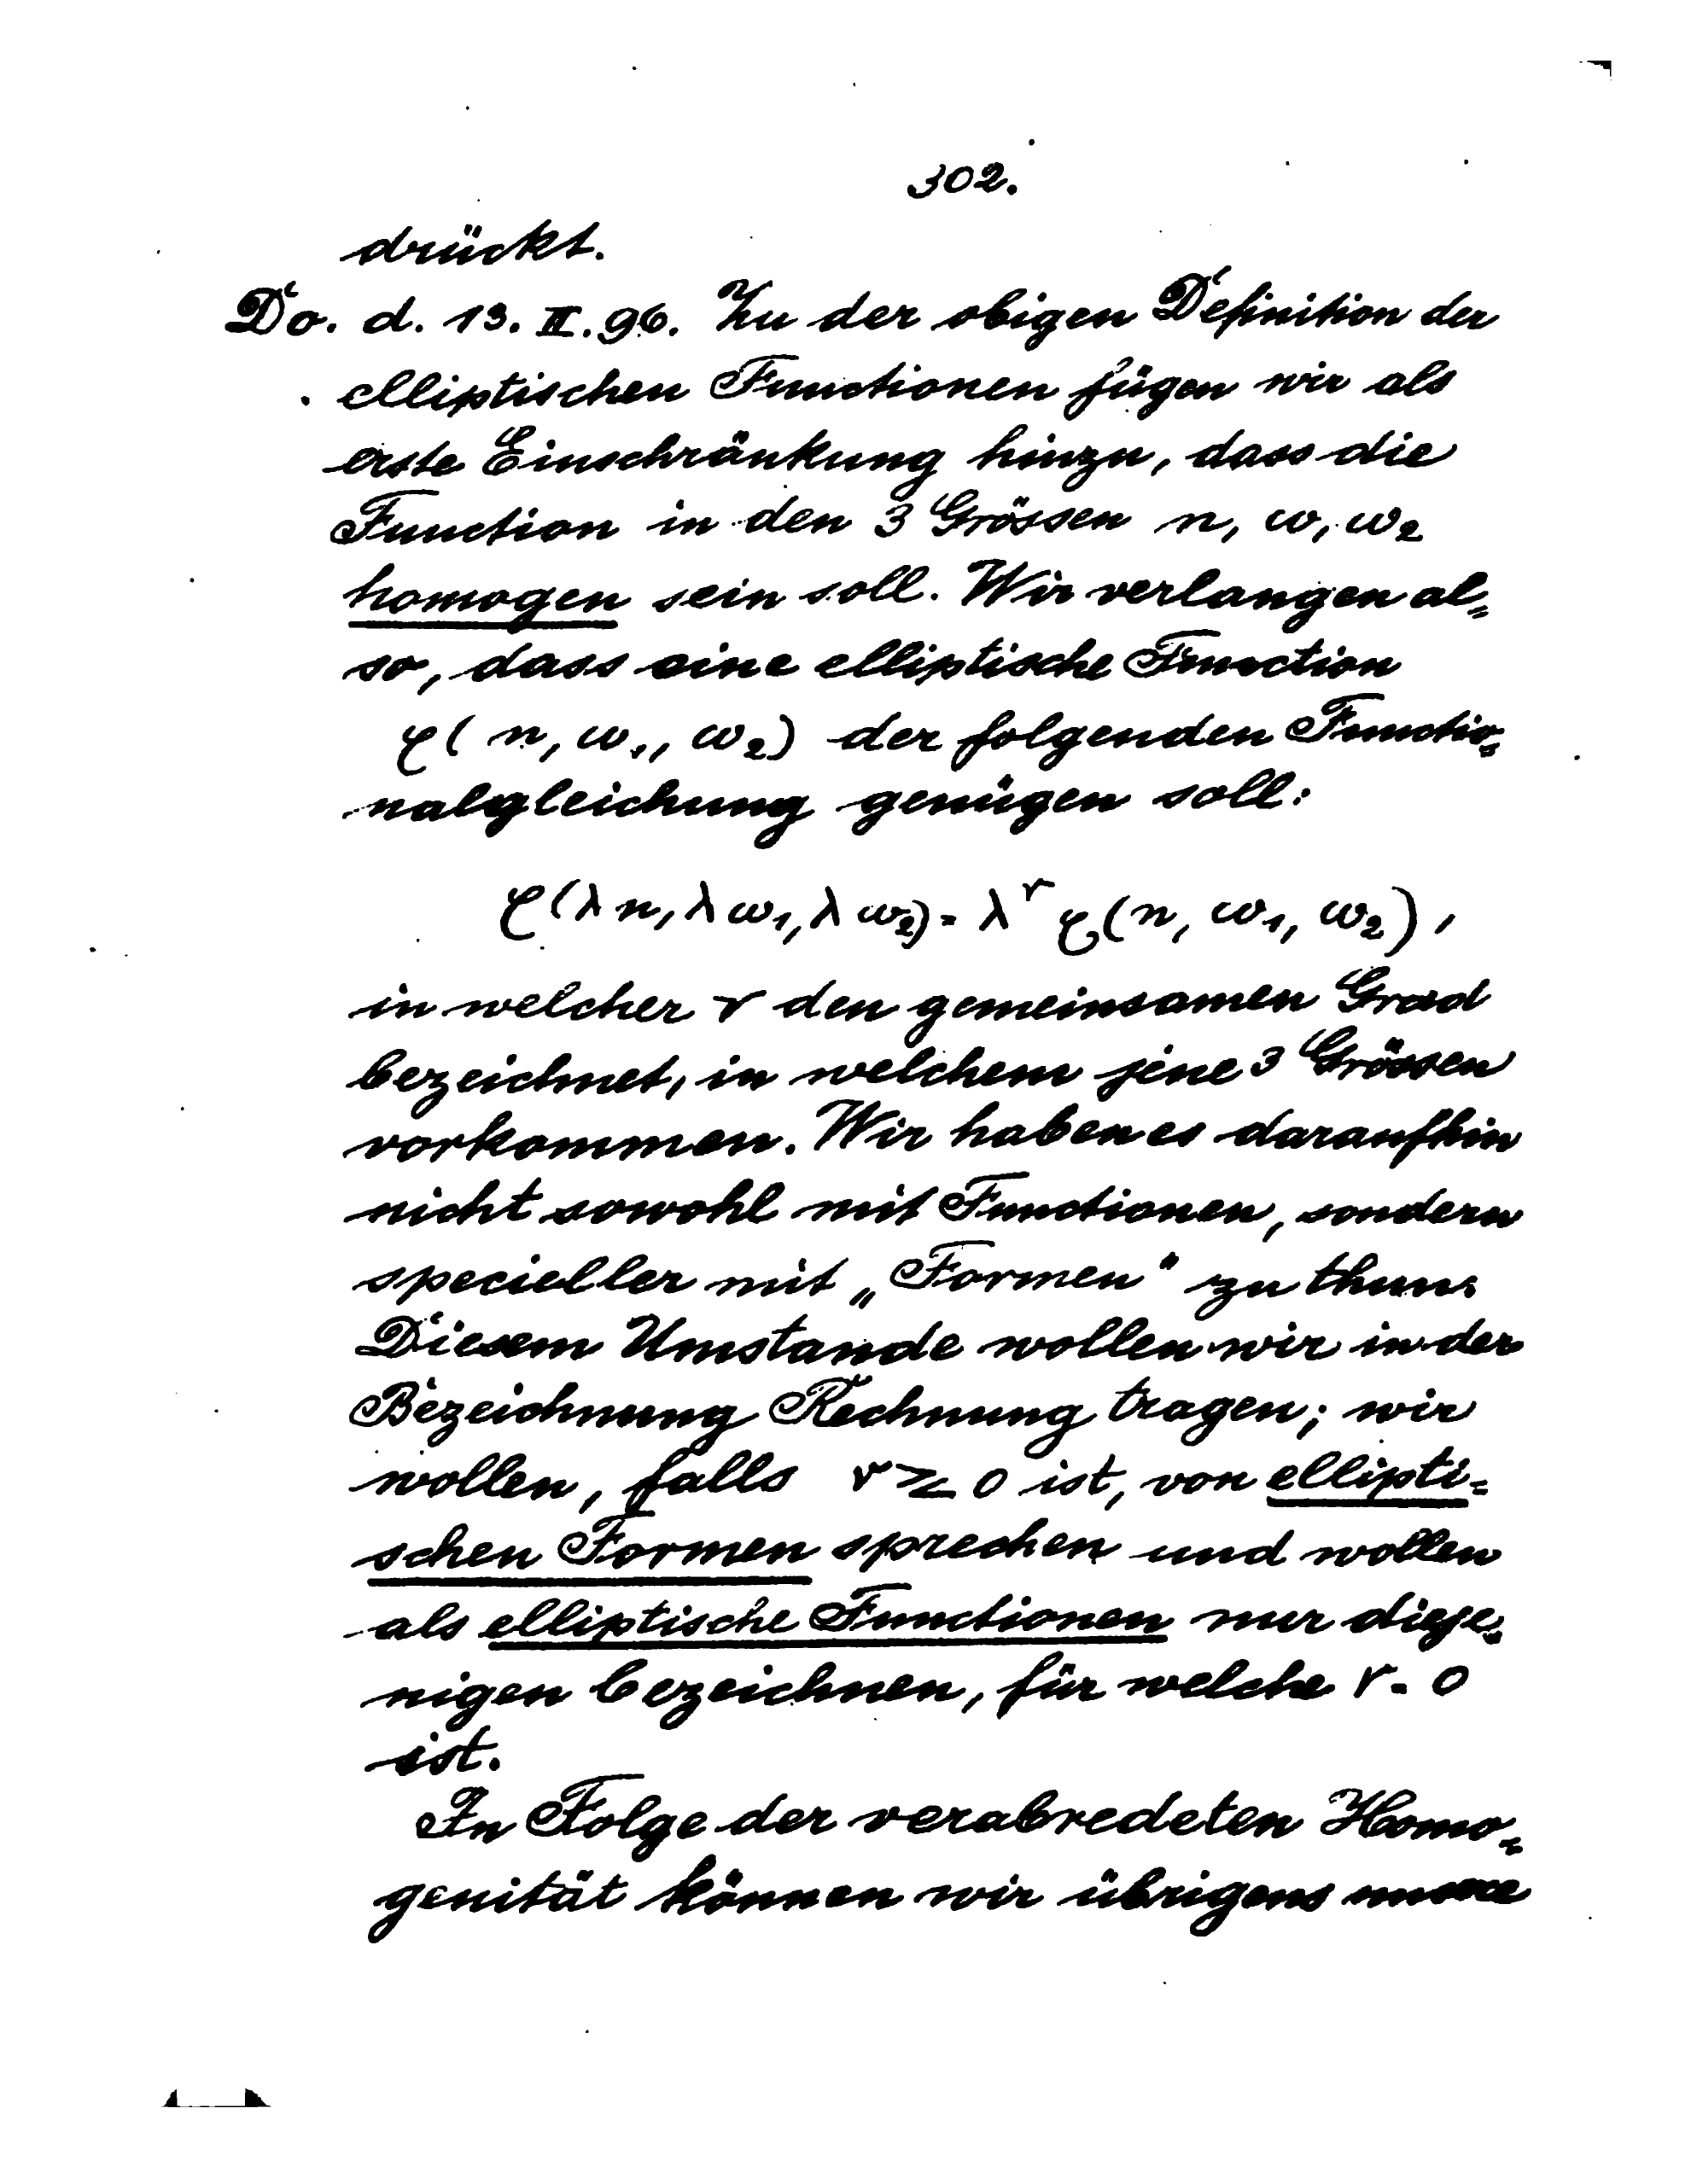 302.
drückt.
Do. d. 13. II. 96. Zu der obigen Definition der
elliptischen Functionen fügen wir als
erste Einschränkung hinzu, dass die
Function in den 3 Grössen u, ω, ω₂
homogen sein soll. Wir verlangen al=
so, dass eine elliptische Function
φ(u, ω₁, ω₂) der folgenden Functio=
nalgleichung genügen soll:
φ(λu, λω₁, λω₂) = λʳ φ(u, ω₁, ω₂),
in welcher r den gemeinsamen Grad
bezeichnet, in welchem jene 3 Grössen
vorkommen. Wir haben es daraufhin
nicht sowohl mit Functionen, sondern
specieller mit „Formen" zu thun.
Diesem Umstande wollen wir in der
Bezeichnung Rechnung tragen; wir
wollen, falls r ≷ 0 ist, von ellipti=
schen Formen sprechen und wollen
als elliptische Functionen nur dieje=
nigen bezeichnen, für welche r = 0
ist.
In Folge der verabredeten Homo=
genität können wir übrigens